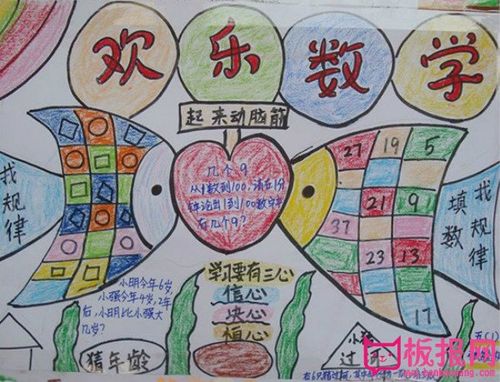 欢乐数学
起来动脑筋
几个9
从1数到100,请在1分
钟论出1到100数字中
有几个9?
找规律
27 19 5
21 9
37
23 13
17
找规律
填数
学习要有三心
信心
决心
恒心
小明今年6岁,
小强今年4岁,2年
后,小明比小强大
几岁?
猜年龄
小猫
过河
板报网